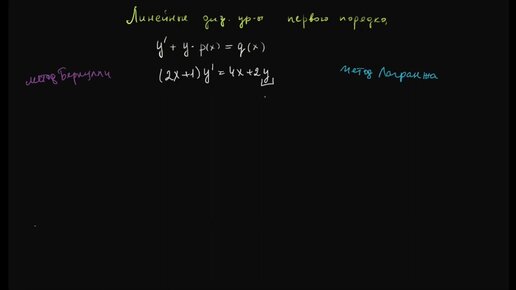 Линейные диф. ур-я первого порядка.
y' + y · p(x) = q(x)
метод Бернулли
(2x+1) y' = 4x + 2y
метод Лагранжа